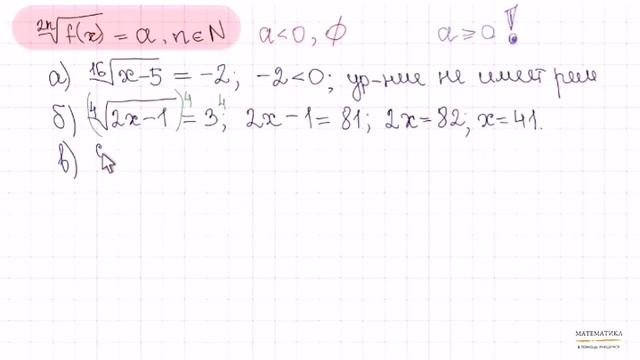 ²ⁿ√f(x) = a, n∈N a<0, ∅ a⩾0 !
а) ¹⁶√x-5 = -2; -2<0; ур-ние не имеет реш
б) (⁴√2x-1)⁴ = 3⁴; 2x-1 = 81; 2x = 82, x = 41.
в)
МАТЕМАТИКА
В ПОМОЩЬ УЧАЩЕМУСЯ